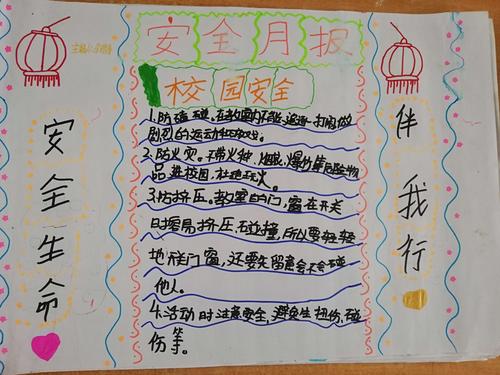 安全月报
校园安全
安全生命
伴我行
1.防磕碰。在教室内不能追逐、打闹,做
剧烈的运动和游戏。
2.防火灾。不带火种、烟眼、爆竹等危险物
品进校园,杜绝玩火。
3.防挤压。教室的门,窗在开关
时容易挤压,碰撞,所以要轻轻
地开关门窗,还要先留意会不会碰
他人。
4.活动时注意安全,避免生扭伤,碰
伤等。